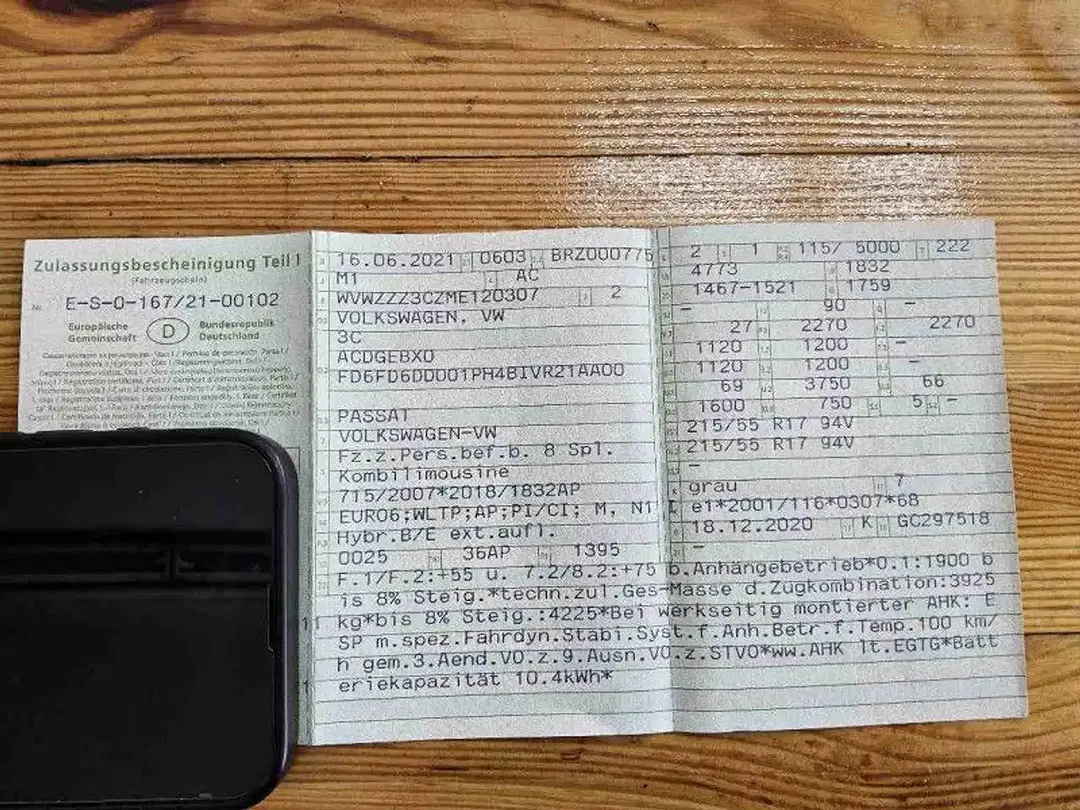 Zulassungsbescheinigung Teil I
(Fahrzeugschein)
Nr. E-S-0-167/21-00102
Europäische Gemeinschaft
D
Bundesrepublik Deutschland
16.06.2021 0603 BRZ000775
M1 AC
WVWZZZ3CZME120307 2
VOLKSWAGEN, VW
3C
ACDGEBX0
FD6FD6DD001PH4BIVR21AA00
PASSAT
VOLKSWAGEN-VW
Fz.z.Pers.bef.b. 8 Spl.
Kombilimousine
715/2007*2018/1832AP
EURO6;WLTP;AP;PI/CI; M, N1 I
Hybr.B/E ext.aufl.
0025 36AP 1395
2 1 115/ 5000 222
4773 1832
1467-1521 1759
- 90 -
27 2270 2270
1120 1200 -
1120 1200 -
69 3750 66
1600 750 5 -
215/55 R17 94V
215/55 R17 94V
-
grau 7
e1*2001/116*0307*68
18.12.2020 K GC297518
-
F.1/F.2:+55 u. 7.2/8.2:+75 b.Anhängebetrieb*O.1:1900 b
is 8% Steig.*techn.zul.Ges-Masse d.Zugkombination:3925
kg*bis 8% Steig.:4225*Bei werkseitig montierter AHK: E
SP m.spez.Fahrdyn.Stabi.Syst.f.Anh.Betr.f.Temp.100 km/
h gem.3.Aend.VO.z.9.Ausn.VO.z.STVO*ww.AHK lt.EGTG*Batt
eriekapazität 10.4kWh*